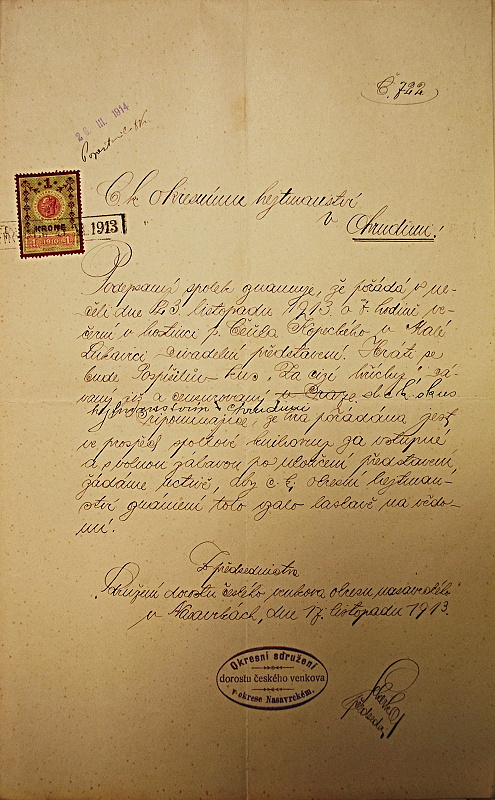 Č. 722
22 III. 1914
1
KRONE
1 1910 1
1913
C. k. okresnímu hejtmanství
v
Chrudimi!
Podepsaný spolek oznamuje, že pořádá v ne-
děli dne 23. listopadu 1913. o 7 hodině ve-
černí v hostinci p. Cyrila Kopeckého v Malé
Lukavici divadelní představení. Hráti se
bude Pospíšilův kus „Za cizí hříchy" dá-
vaný již a censurovaný v Praze. c. k. okres
hejtmanstvím v Chrudimi
Připomínajíce, že hra pořádána jest
ve prospěch spolkové knihovny za vstupné
a s volnou zábavou po ukončení představení,
žádáme uctivě, aby c. k. okresní hejtman-
ství oznámení toto vzalo laskavě na vědo-
mí.
Za předsednictvo
„Sdružení dorostu českého venkova okresu nasavrckého"
v Nasavrkách, dne 17. listopadu 1913.
Okresní sdružení
dorostu českého venkova
v okrese Nasavrckém.
předseda